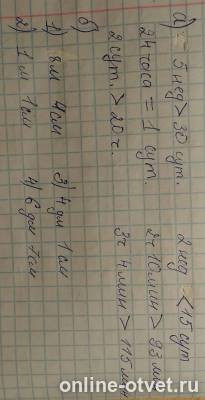 а) 5 нед > 30 сут. 2 нед < 15 сут
24 часа = 1 сут. 2ч 10 мин > 93 м
2 сут. > 20 ч. 3ч 4 мин > 115 мин
б)
1) 8м 4см 3) 4 дм 1 см
2) 1м 4) 6 дм
online-otvet.ru